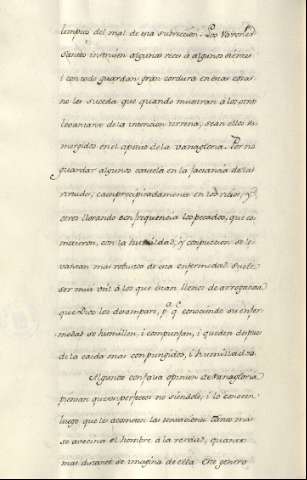 tempus del mal de esta subreccion. Los Varones
Santos instruien algunas veces á algunos oientes
i con todo guardan gran cordura en estas cosas
no les suceda que quando muestran á los otros
levantarse de la intencion terrena, sean ellos su
mergidos en el de la vanagloria. Por no
guardar algunos cautela en la jactancia de las
virtudes, caen precipitadamente en los vicios, y
otros llorando con frequencia los pecados, que co
metieron, con la humildad, y compuncion se le
vantan mas robustos de esa enfermedad. Suele
ser mui util á los que estan llenos de arrogancia
que Dios los desampare, pa. qe. conociendo su enfer
medad se humillen, i compunjan, i queden despues
de la caida mas compungidos, i humillados.
Algunos con falsa opinion de vanagloria
piensan que son perfectos no siendolo, i lo conocen
luego que le acometen las tentaciones. Tanto mas
se avecina el hombre á la verdad, quanto
mas distante se imagina de ella. Este genero